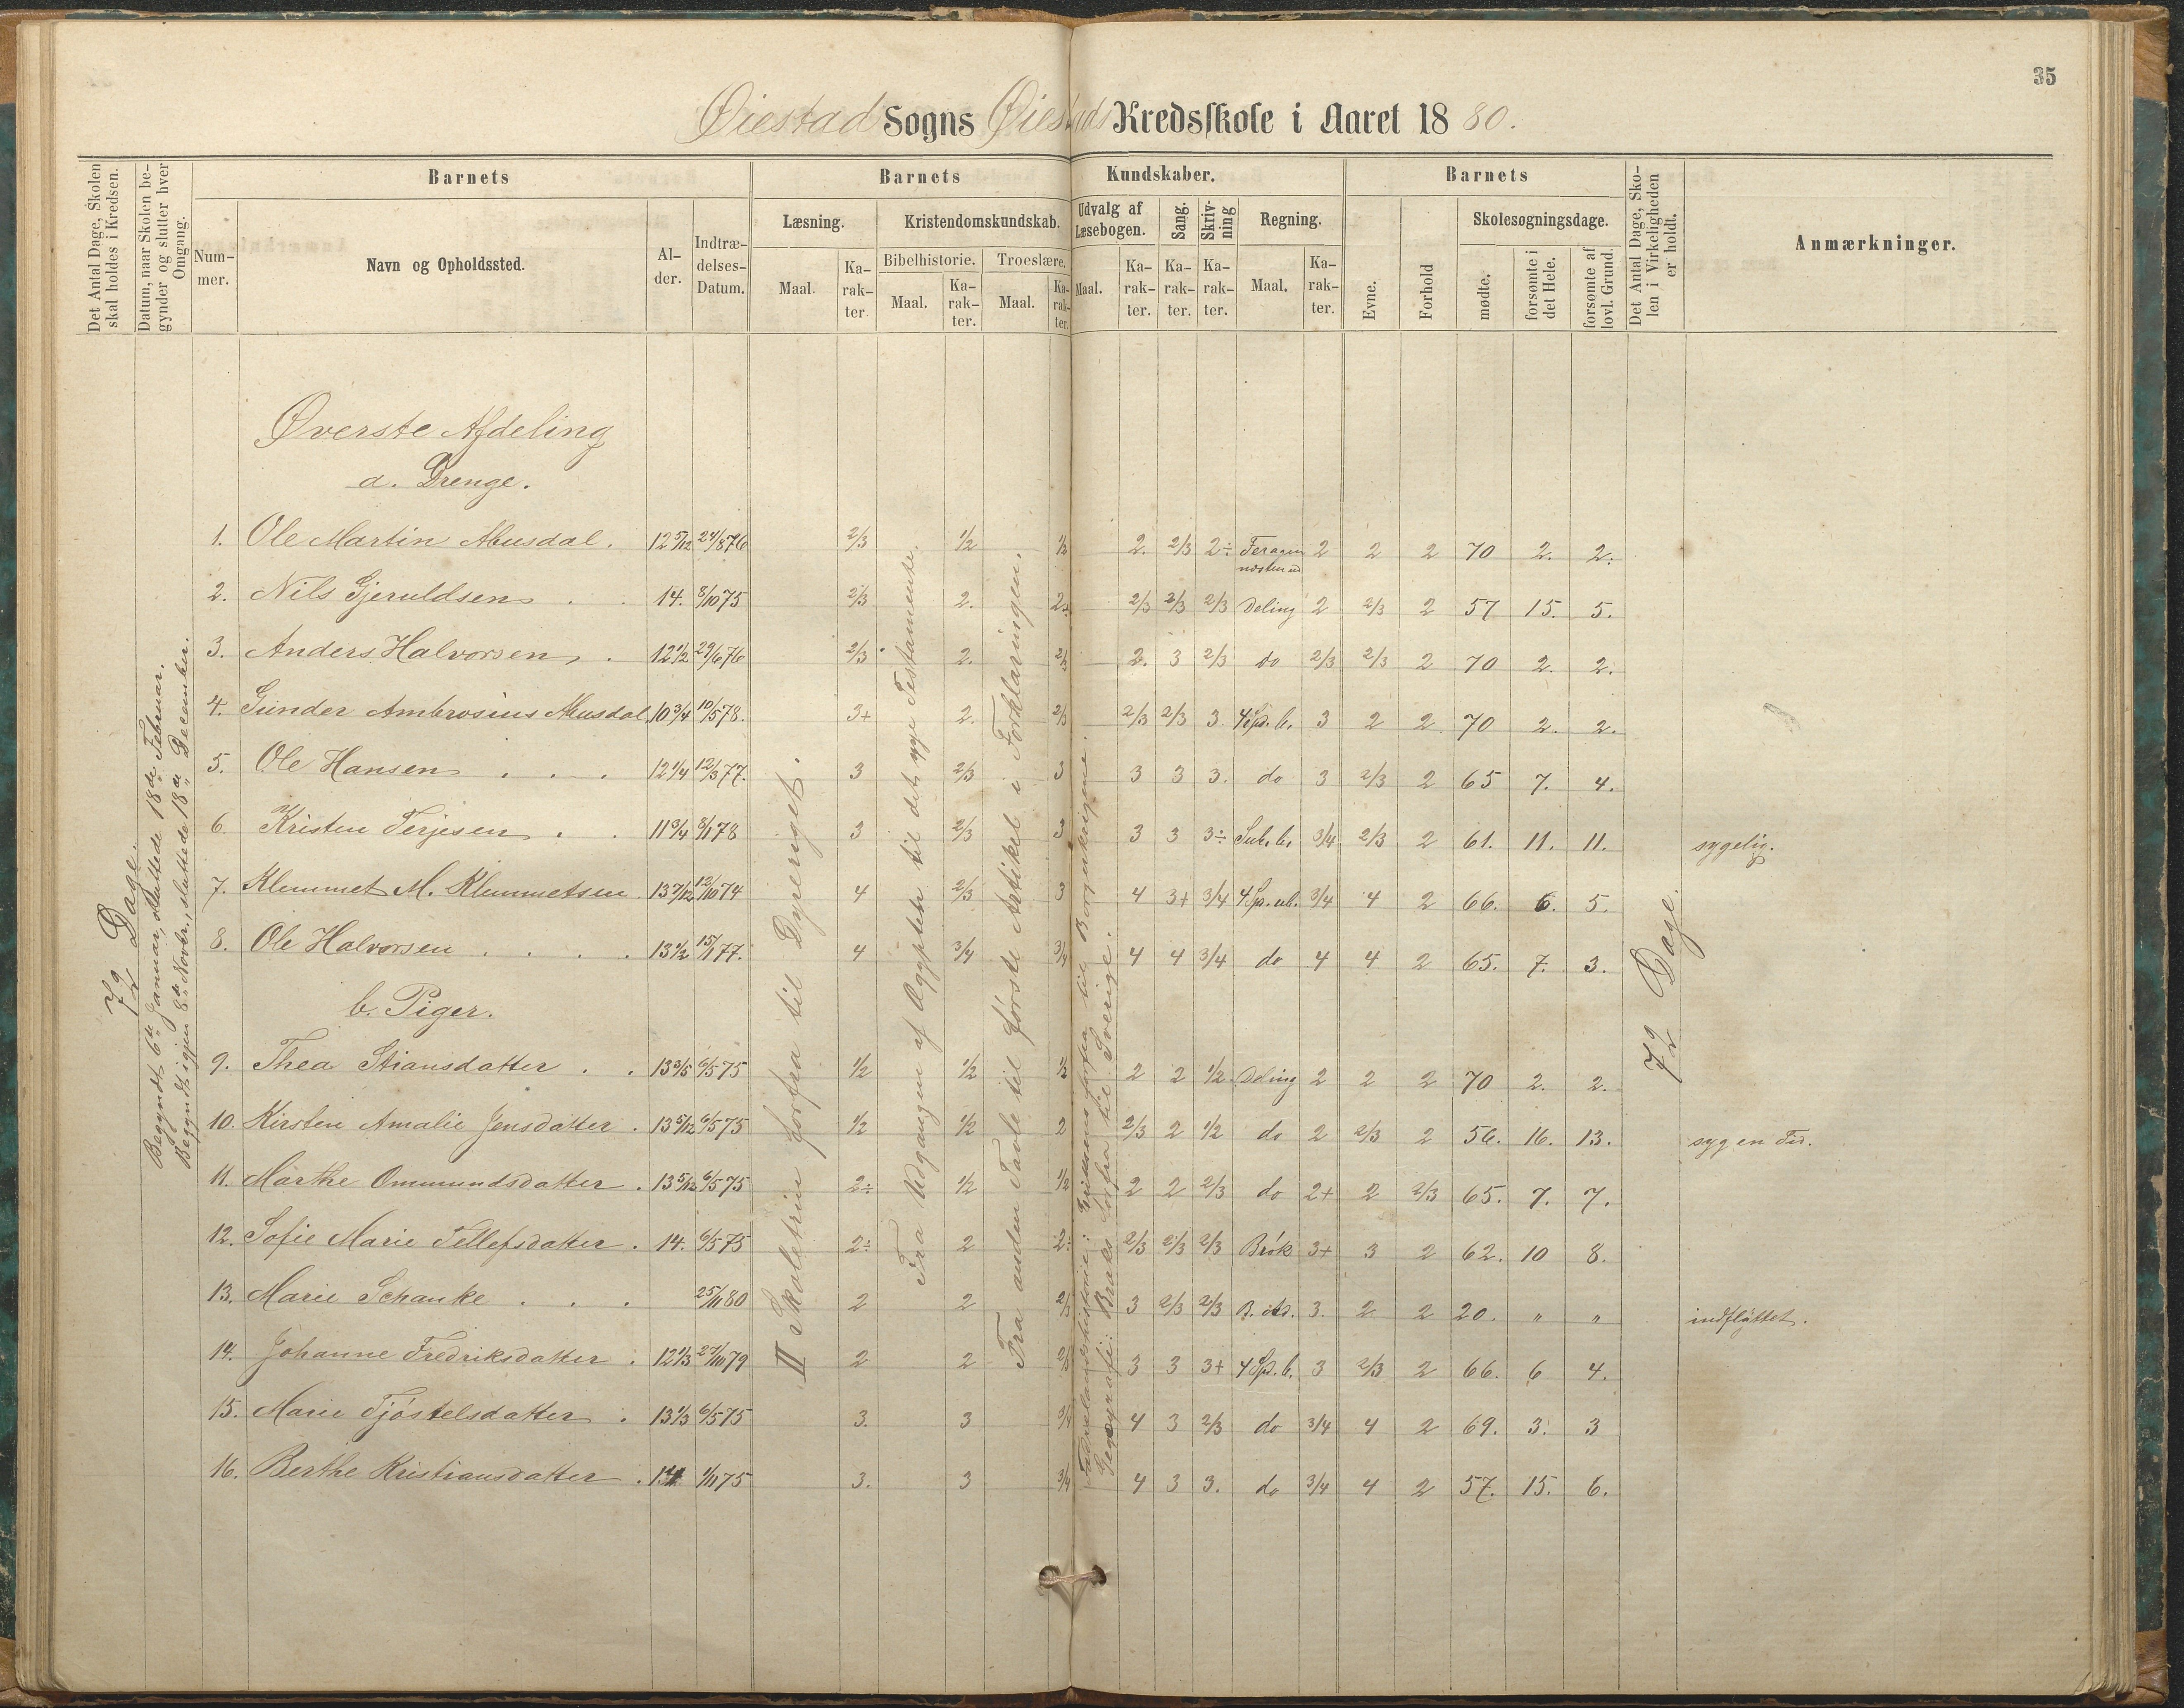 35
Øiestad Sogns Øiestads Kredsskole i Aaret 1880.
Det Antal Dage, Skolen skal holdes i Kredsen.
Datum, naar Skolen begynder og slutter hver Omgang.
Barnets
Nummer.
Navn og Opholdssted.
Alder.
Indtrædelses-Datum.
Barnets Kundskaber.
Læsning.
Maal.
Karakter
Kristendomskundskab.
Bibelhistorie.
Maal.
Karakter.
Troeslære.
Maal.
Karakter.
Udvalg af Læsebogen.
Maal.
Karakter.
Sang.
Karakter.
Skrivning
Karakter.
Regning.
Maal.
Karakter.
Barnets
Evne.
Forhold
Skolesøgningsdage.
mødte.
forsømte i det Hele.
forsømte af lovl. Grund.
Det Antal Dage, Skolen i Virkeligheden er holdt.
Anmærkninger.
72 Dage.
Begyndt 6te Januar, sluttede 18de Februar.
Begyndt igjen 8de Novbr., sluttede 18de December.
II Skoletrin forfra til Dyreriget.
Fra Udgangen af Ægypten til det nye Testamente.
Fra anden Tavle til første Artikel i Forklaringen.
Fædrelandshistorie: forfra til Borgerkrigene.
Geografi: forfra til Sverige.
72 Dage.
Øverste Afdeling
a. Drenge.
1. Ole Martin Musdal. 12 5/12 24/8 76 2/3 1/2 1/2 2. 2/3 2÷ 2 2 2 70 2. 2.
2. Nils Gjeruldsen . . 14. 8/10 75 2/3 2. 2÷ 2/3 2/3 2/3 Deling 2 2/3 2 57 15. 5.
3. Anders Halvorsen, . 12 1/2 29/6 76 2/3 2. 2/3 2. 3 2/3 do 2/3 2/3 2 70 2. 2.
4. Gunder Ambrosius Musdal 10 3/4 10/5 78. 3+ 2. 2/3 2/3 2/3 3. 4 Sp. b. 3 2 2 70 2. 2.
5. Ole Hansen . . . 12 1/4 12/3 77. 3 2/3 3 3 3 3. do 3 2/3 2 65 7. 4.
6. Kristen Terjesen . . 11 3/4 8/1 78 3 2/3 3 3 3 3÷ Sub. b. 3/4 2/3 2 61. 11. 11. sygelig.
7. Klemmet M. Klemmetsen 13 7/12 12/10 74 4 2/3 3 4 3+ 3/4 4 Sp. ub. 3/4 4 2 66. 6. 5.
8. Ole Halvorsen . . . . 13 1/2 15/1 77. 4 3/4 3/4 4 4 3/4 do 4 4 2 65. 7. 3.
b. Piger.
9. Thea Stiansdatter . . 13 3/5 6/5 75 1/2 1/2 1/2 2 2 1/2 Deling 2 2 2 70 2. 2.
10. Kirsten Amalie Jensdatter . 13 5/12 6/5 75 1/2 1/2 2 2/3 2 1/2 do 2 2/3 2 56. 16. 13. syg en Tid.
11. Marthe Ommundsdatter . 13 5/12 6/5 75 2÷ 1/2 1/2 2 2 2/3 do 2+ 2 2/3 65. 7. 7.
12. Sofie Marie Tellefsdatter . 14. 6/5 75 2÷ 2 2÷ 2/3 2/3 2/3 Brøk 3+ 3 2 62. 10 8.
13. Marie Schanke . . . 25/11 80 2 2 2/3 3 2/3 2/3 3. 2 2 20. " " indflyttet.
14. Johanne Fredriksdatter . 12 1/3 27/10 79 2 2 2/3 3 3 3+ 4 Sp. b. 3 2/3 2 66. 6 4.
15. Marie Tjøstelsdatter . 13 1/3 6/5 75 3. 3 3/4 4 3 2/3 do 3/4 4 2 69. 3. 3
16. Berthe Kristiansdatter . 14 1/11 75 3. 3 3/4 4 3 3. do 3/4 4 2 57. 15. 6.